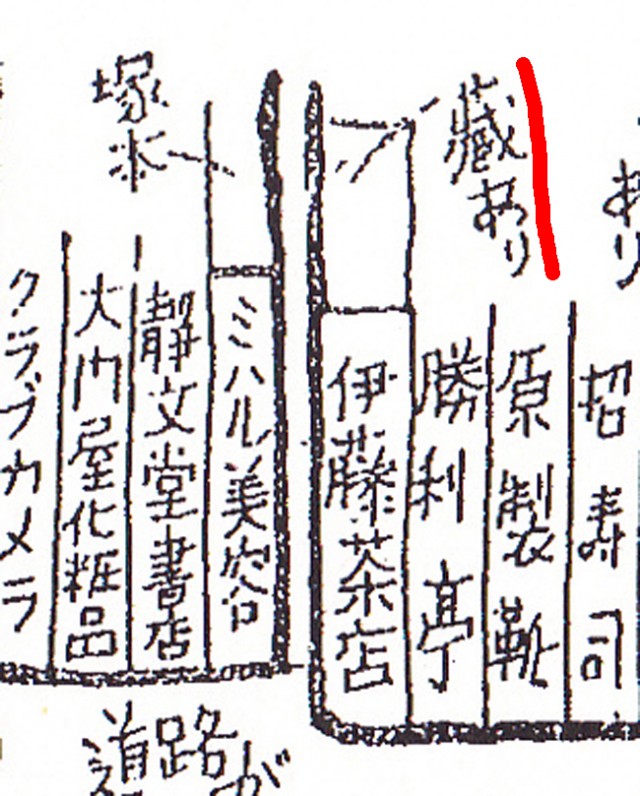 あり
招寿司
蔵あり
原製靴
勝利亭
伊藤茶店
塚本
ミハル美容
静文堂書店
大内屋化粧品
クラブカメラ
道路が